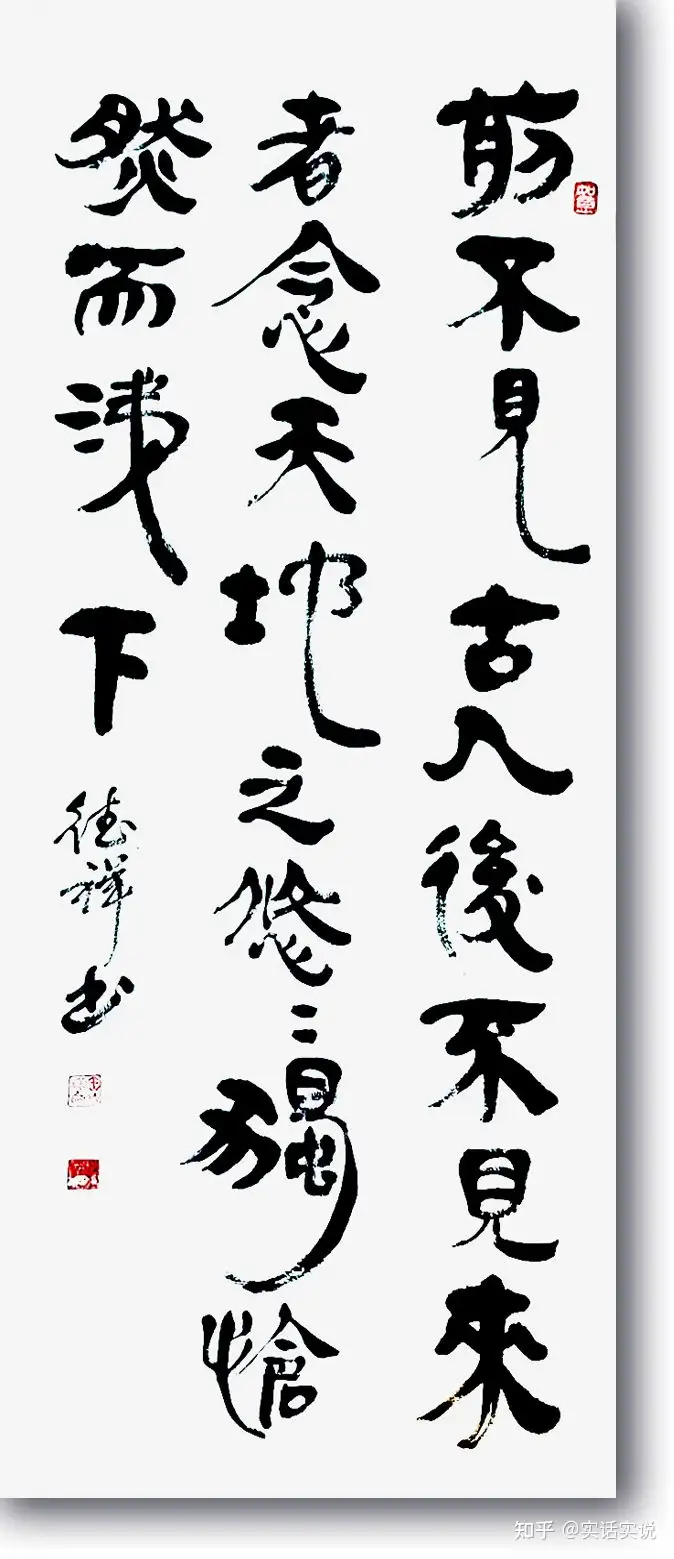 前不見古人後不見來
者念天地之悠〻獨愴
然而涕下 德祥书
知乎 @实话实说